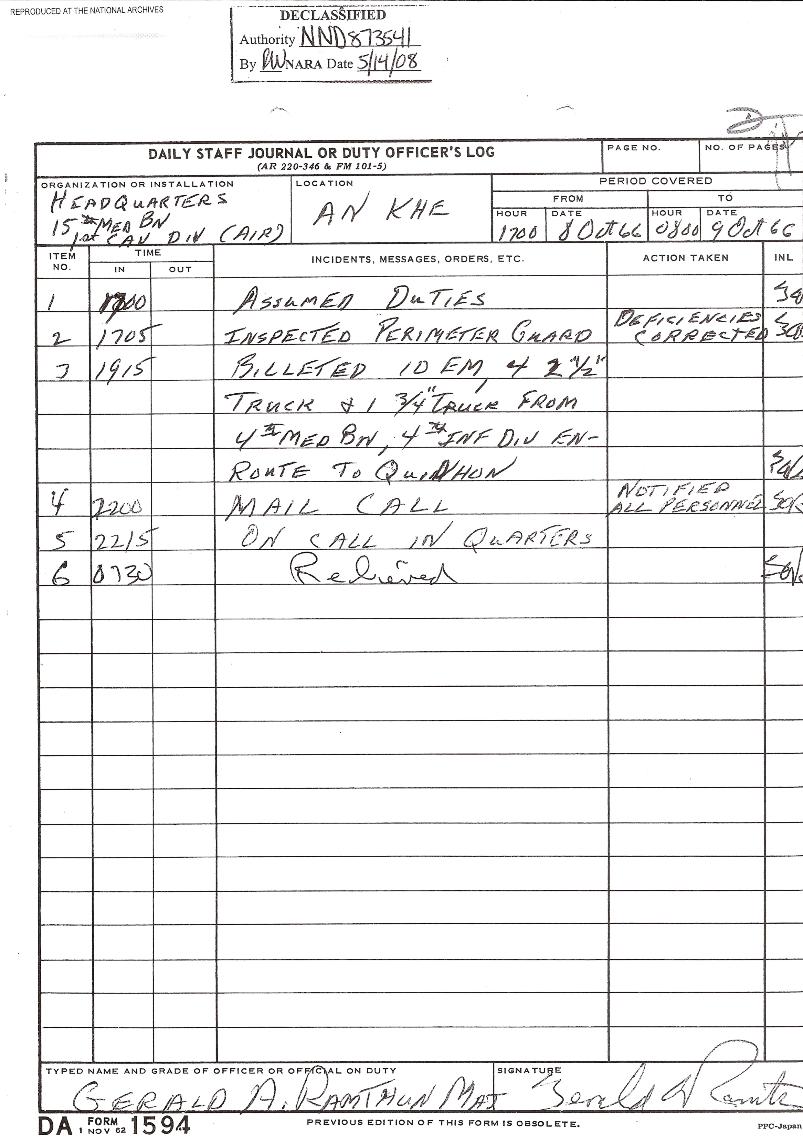 REPRODUCED AT THE NATIONAL ARCHIVES
DECLASSIFIED
Authority NND873541
By NARA Date 5/14/08
DAILY STAFF JOURNAL OR DUTY OFFICER'S LOG
(AR 220-346 & FM 101-5)
PAGE NO.
NO. OF PAGES
ORGANIZATION OR INSTALLATION
HEADQUARTERS
15th MED BN
1st CAV DIV (AIR)
LOCATION
AN KHE
PERIOD COVERED
FROM
TO
HOUR DATE HOUR DATE
1700 8 Oct 66 0800 9 Oct 66
ITEM NO.
TIME
IN OUT
INCIDENTS, MESSAGES, ORDERS, ETC.
ACTION TAKEN
INL
1 1700 ASSUMED DUTIES
2 1705 INSPECTED PERIMETER GUARD DEFICIENCIES CORRECTED
3 1915 BILLETED 10 EM, 4 2 1/2"
TRUCK & 1 3/4" TRUCK FROM
4th MED BN, 4th INF DIV EN-
ROUTE TO QUINHON
4 2200 MAIL CALL NOTIFIED ALL PERSONNEL
5 2215 ON CALL IN QUARTERS
6 0730 Relieved
TYPED NAME AND GRADE OF OFFICER OR OFFICIAL ON DUTY
GERALD A. RAMTHUN MAJ
SIGNATURE
DA FORM 1594
1 NOV 62
PREVIOUS EDITION OF THIS FORM IS OBSOLETE.
PPC-Japan